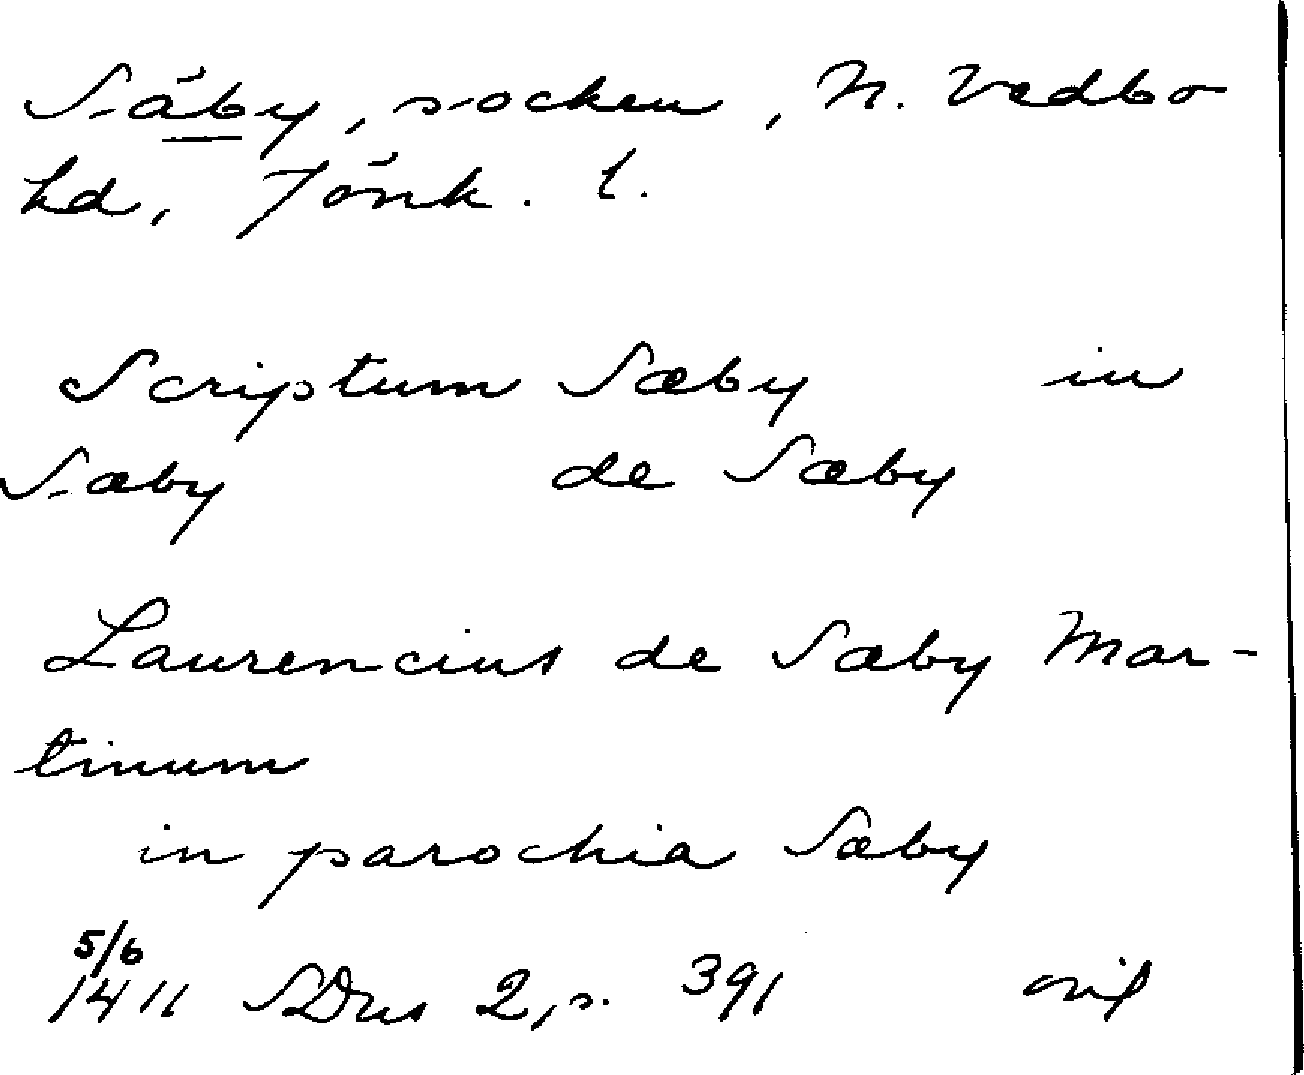 Säby, socken, N. Vedbo
hd, Jönk. l.
Scriptum Sæby in
Sæby de Sæby
Laurencius de Sæby Mar-
tinum
in parochia Sæby
5/6
1411 SDns 2, s. 391